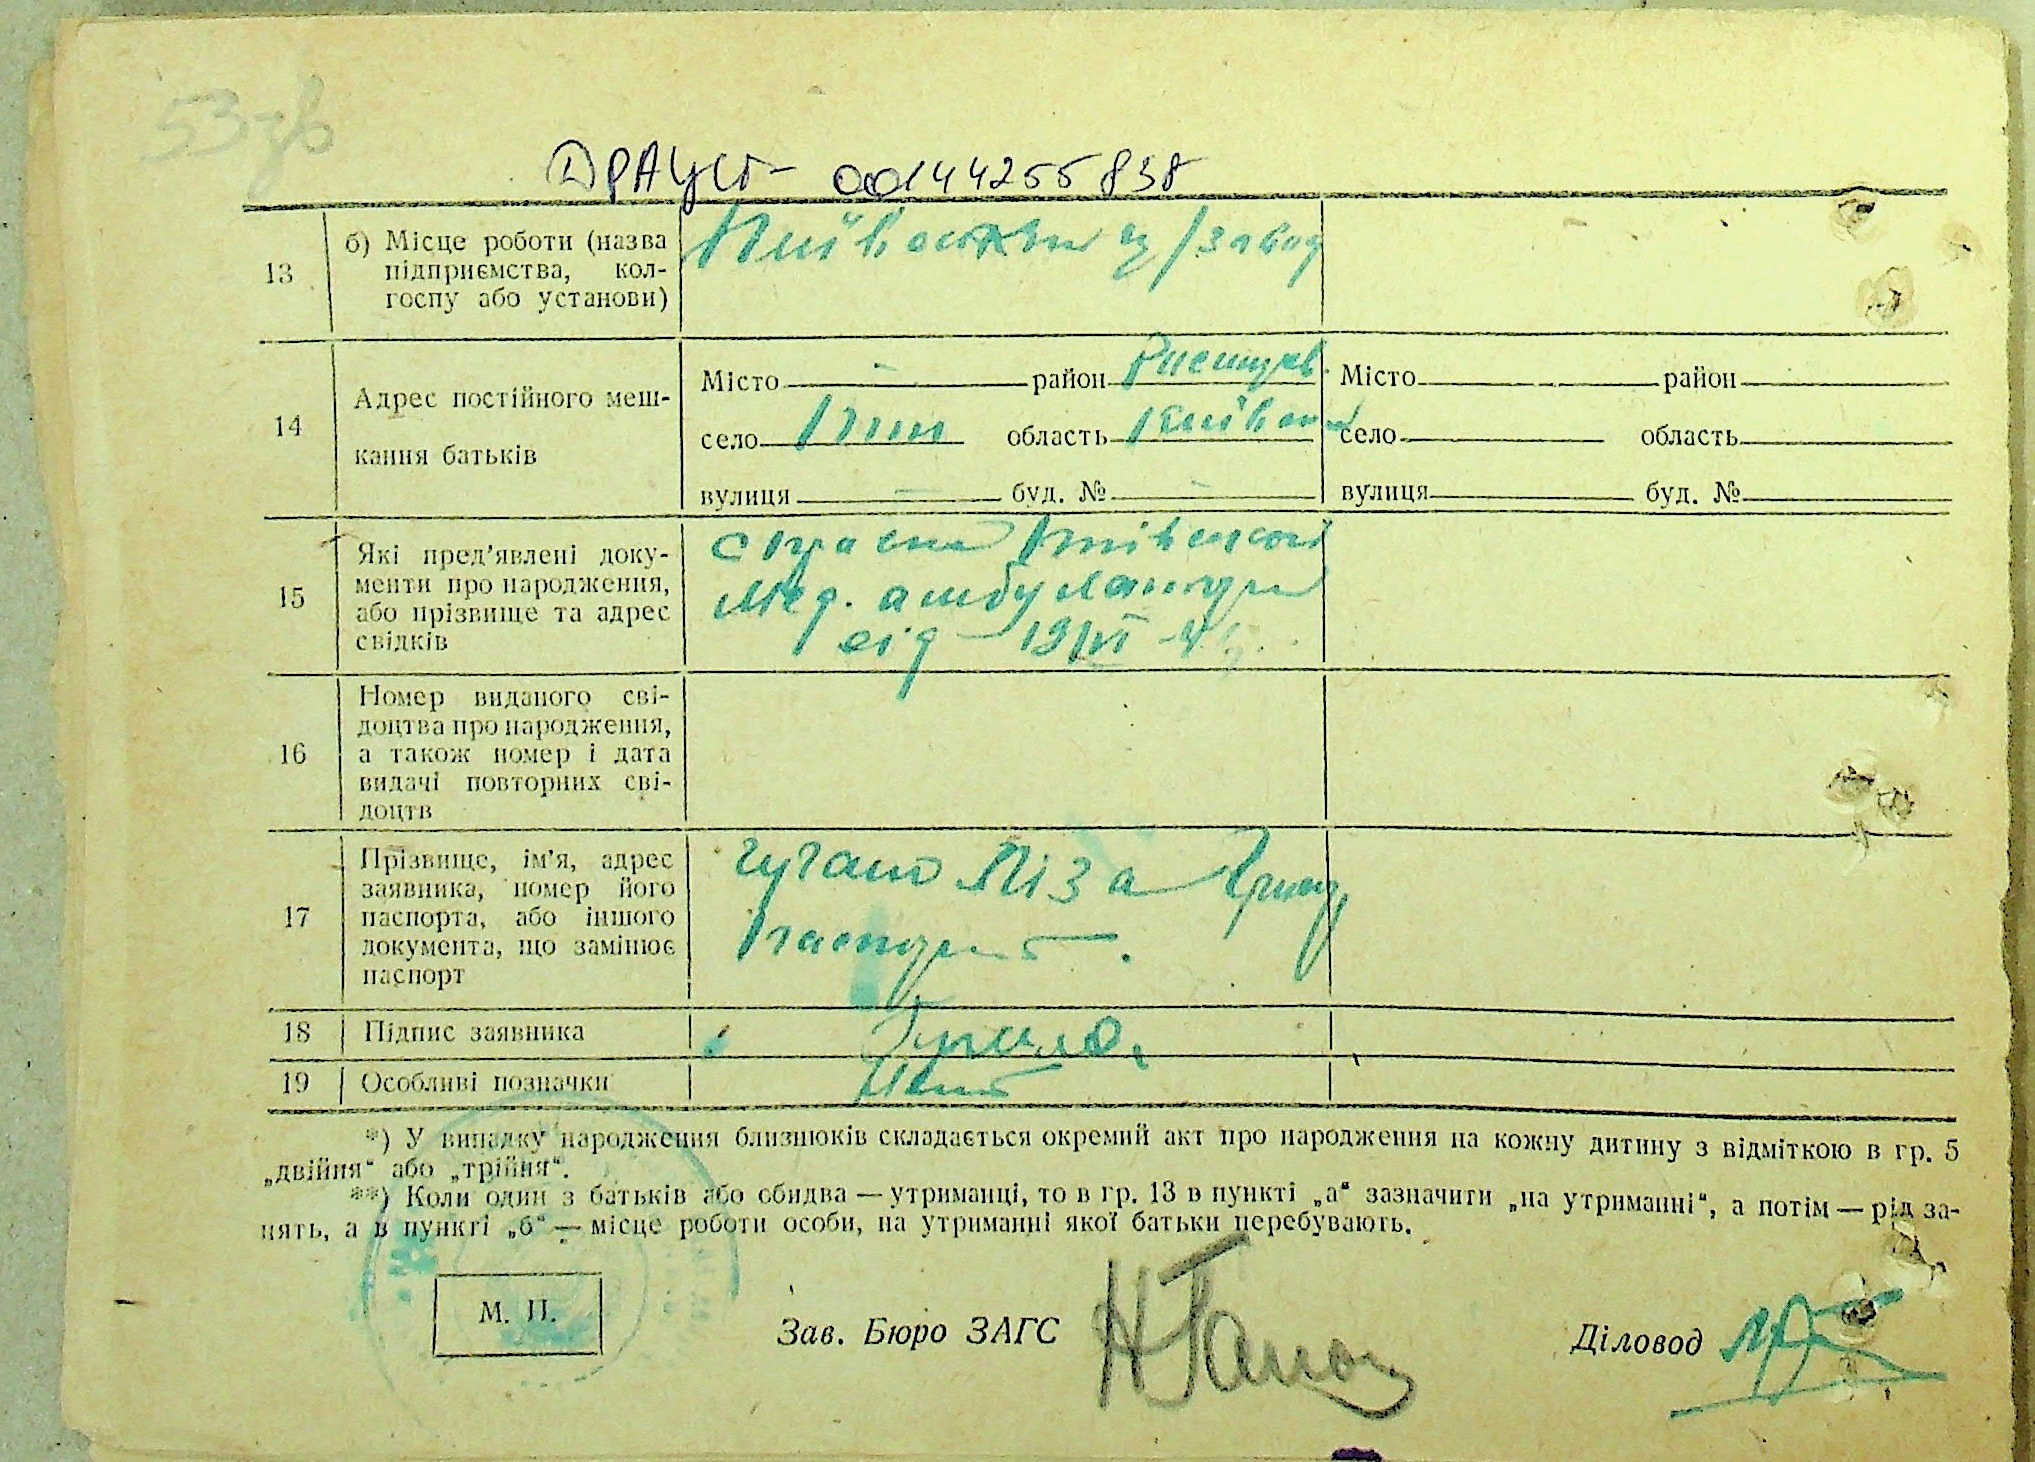 53 зв
ДРАЦСГ- 00144255838
13
б) Місце роботи (назва
підприємства, кол-
госпу або установи)
ц/завод
14
Адрес постійного меш-
кання батьків
Місто — район
село область
вулиця — буд. № —
Місто район
село область
вулиця буд. №
15
Які пред'явлені доку-
менти про народження,
або прізвище та адрес
свідків
справка
мед. амбулатори
від 19/VI
16
Номер виданого сві-
доцтва про народження,
а також номер і дата
видачі повторних сві-
доцтв
17
Прізвище, ім'я, адрес
заявника, номер його
паспорта, або іншого
документа, що замінює
паспорт
Ліза
паспорт
18
Підпис заявника
19
Особливі позначки
*) У випадку народження близнюків складається окремий акт про народження на кожну дитину з відміткою в гр. 5
„двійня“ або „трійня“.
**) Коли один з батьків або обидва — утриманці, то в гр. 13 в пункті „а“ зазначити „на утриманні“, а потім — рід за-
нять, а в пункті „б“ — місце роботи особи, на утриманні якої батьки перебувають.
М. П.
Зав. Бюро ЗАГС
Діловод